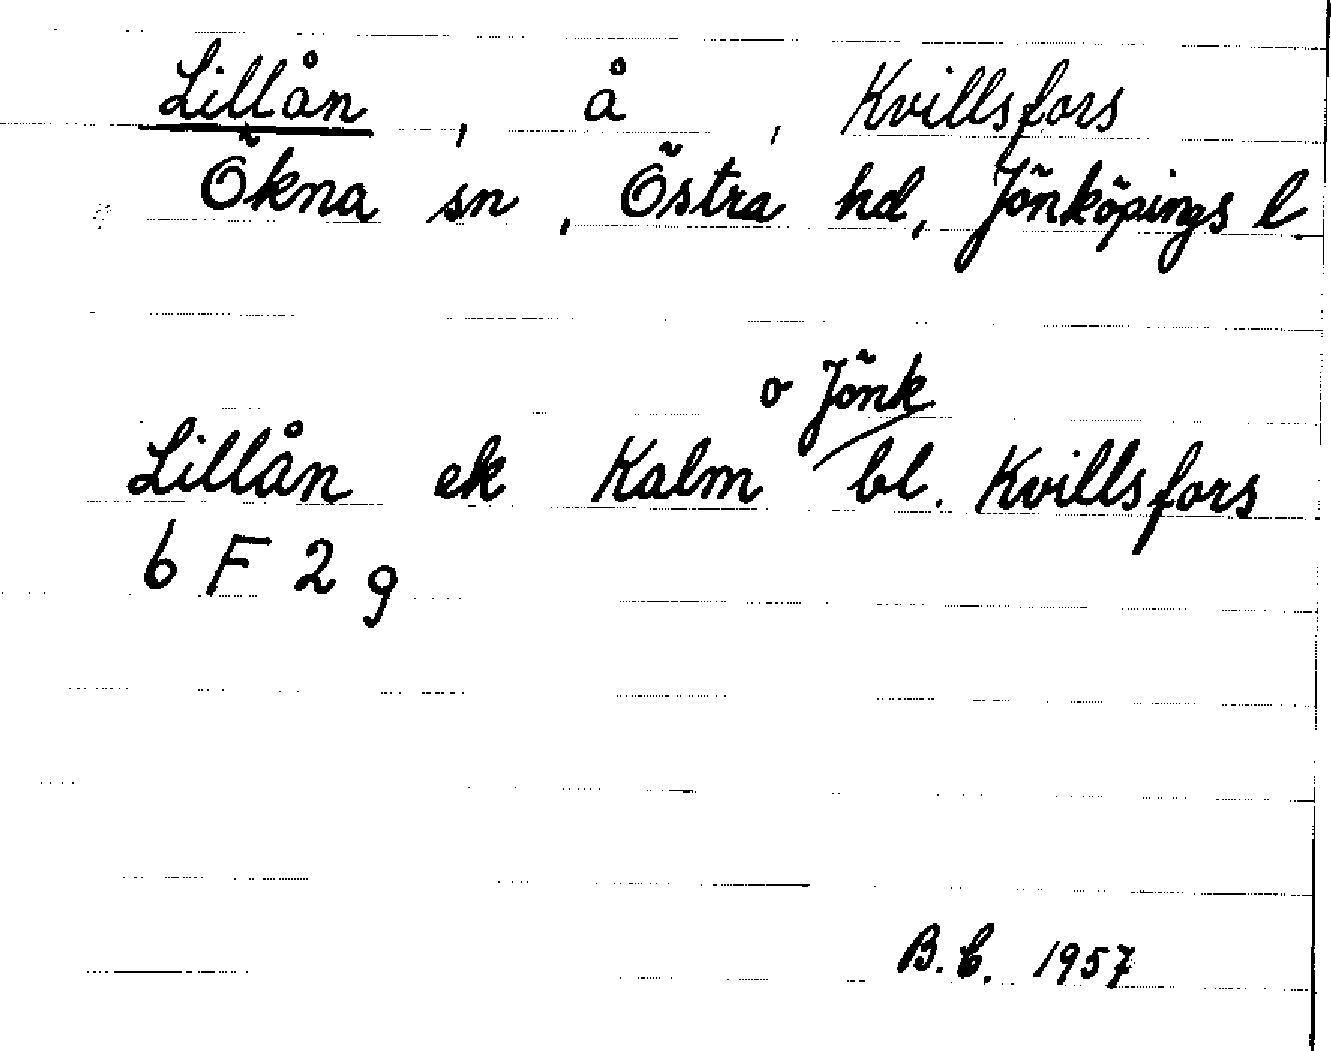 Lillån, å, Kvillsfors
Ökna sn, Östra hd, Jönköpings l.
o Jönk
Lillån ek Kalm / bl. Kvillsfors
6 F 2 g
B.C. 1957